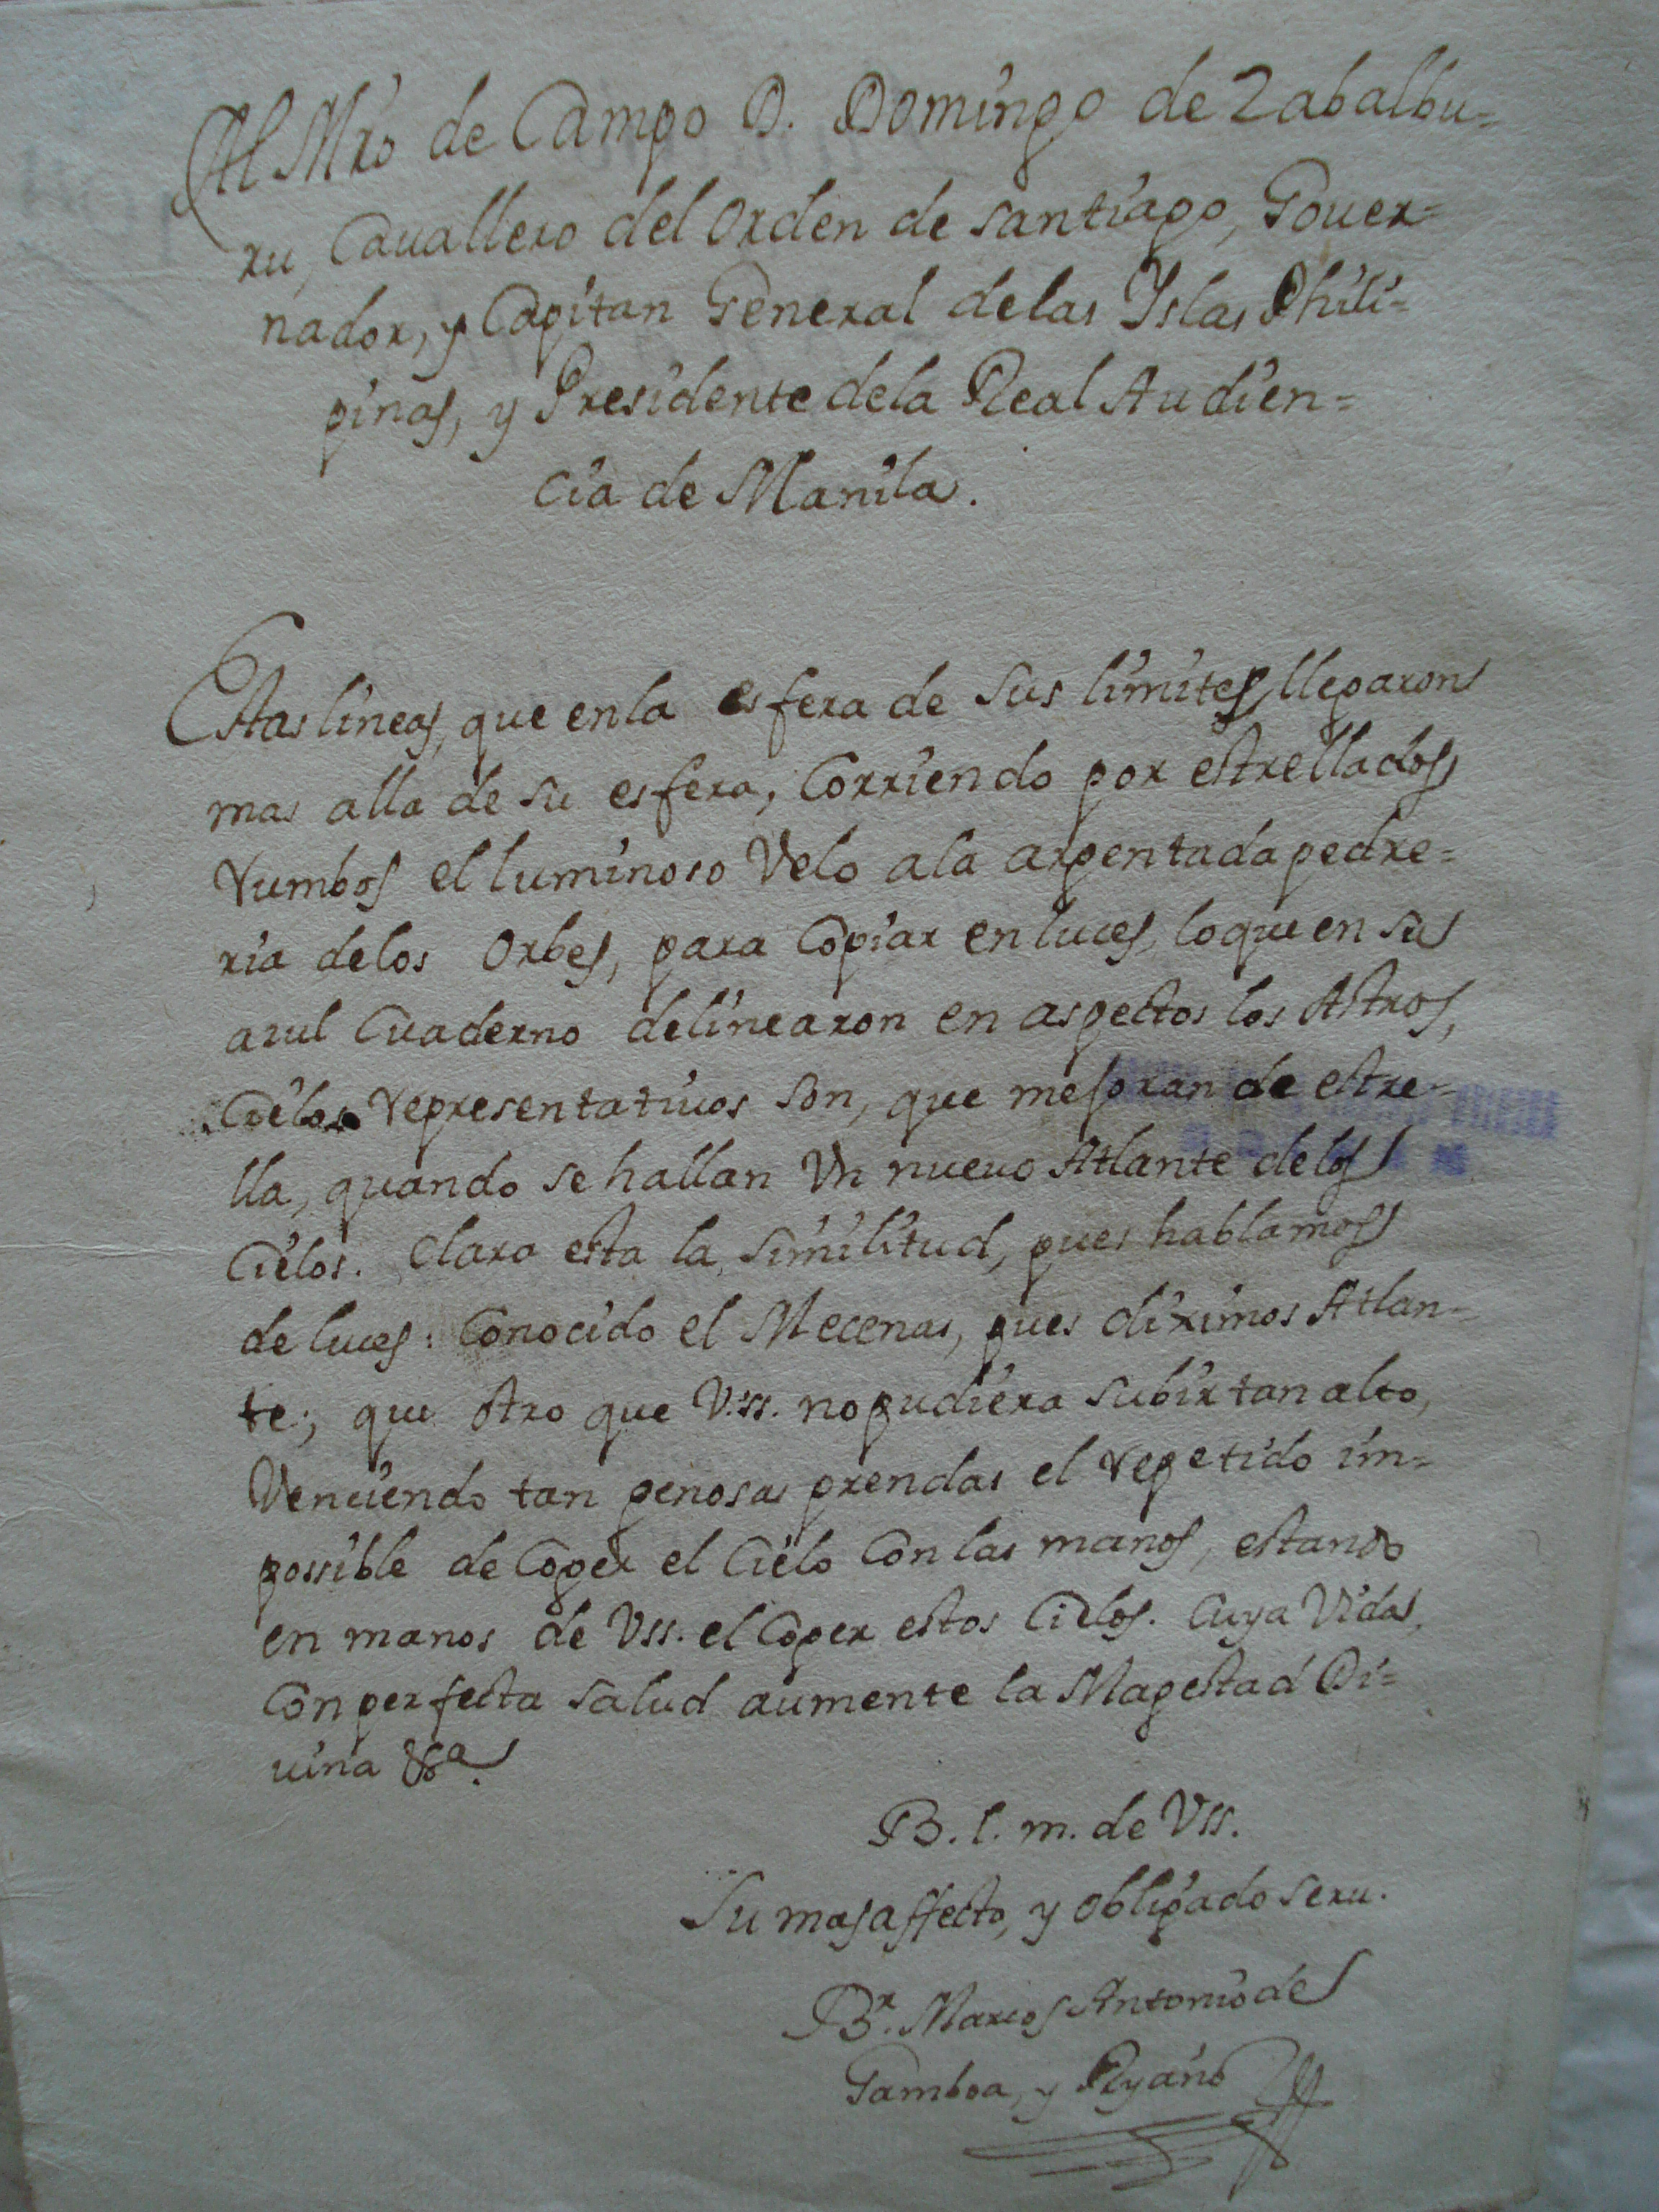 Al Mro de Campo D. Domingo de Zabalbu=
ru, Cauallero del Orden de Santiago, Gouer=
nador, y Capitan General de las Yslas Phili=
pinas, y Presidente dela Real Audien=
cia de Manila.
Estas lineas, que enla esfera de sus limites, llegaron
mas alla de su esfera, Corriendo por estrellados
rumbos el luminoso Velo ala argentada pedre=
ria delos Orbes, para Copiar en luces, loque en su
azul Cuaderno delinearon en aspectos los Astros,
Cielos representatiuos son, que mejoran de estre=
lla, quando se hallan Un nueuo Atlante delos
Cielos. Clara esta la similitud, pues hablamos
de luces: Conocido el Mecenas, pues diximos Atlan=
te; que otro que V.SS. no pudiera subir tan alto,
Venciendo tan penosas prendas el repetido im=
possible de Coger el Cielo Con las manos, estando
en manos de Vss. el Coger estos Cielos. Cuya Vida
Con perfecta salud aumente la Magestad Di=
uina &a.
B. l. m. de Vss.
Su mas affecto, y obligado seru.
Br. Marcos Antonio de
Gamboa, y Ryaño